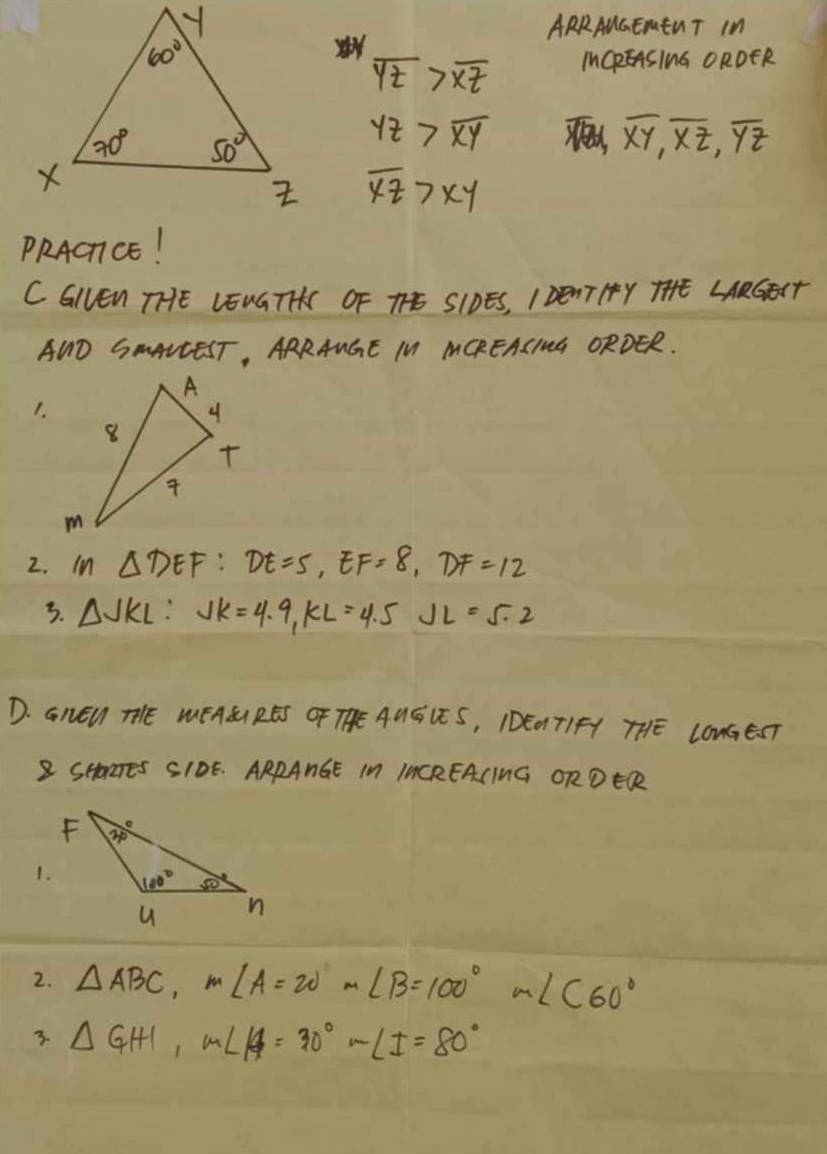 Y
60°
70°
50°
X
Z
YZ > XZ
YZ > XY
XZ > XY
ARRANGEMENT IN
INCREASING ORDER
XY, XZ, YZ
PRACTICE!
C GIVEN THE LENGTHS OF THE SIDES, IDENTIFY THE LARGEST
AND SMALLEST, ARRANGE IN INCREASING ORDER.
1.
A
8
4
T
7
M
2. In △DEF: DE=5, EF=8, DF=12
3. △JKL: JK=4.9, KL=4.5 JL=5.2
D. GIVEN THE MEASURES OF THE ANGLES, IDENTIFY THE LONGEST
& SHORTES SIDE. ARRANGE IN INCREASING ORDER
F
30°
1.
100°
50°
U
n
2. △ABC, m∠A=20° m∠B=100° m∠C60°
3. △GHI, m∠H=30° m∠I=80°